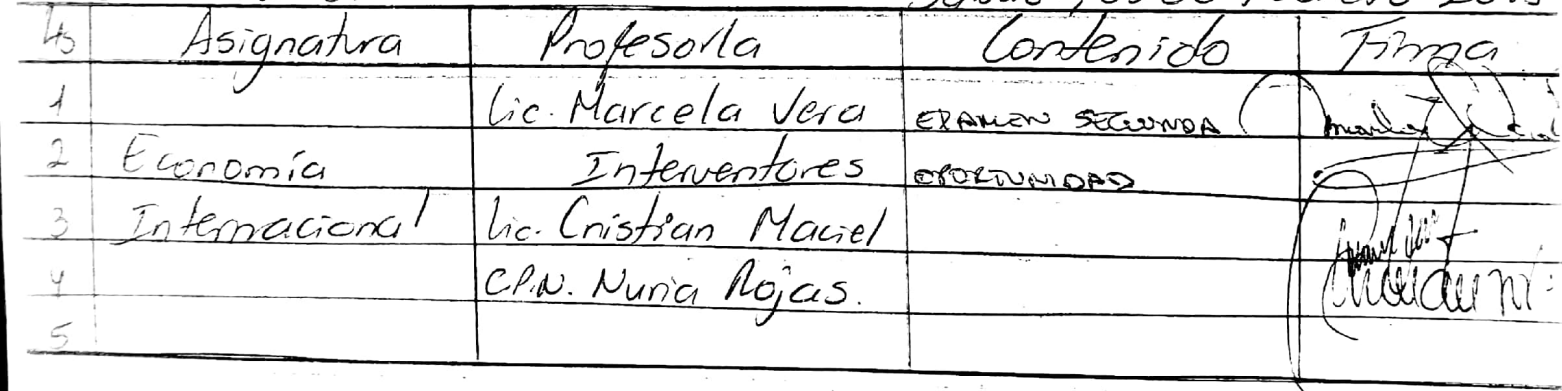 Hs Asignatura Profesor/a Contenido Firma
1 Lic. Marcela Vera EXAMEN SEGUNDA
2 Economía Interventores OPORTUNIDAD
3 Internacional Lic. Cristian Maciel
4 C.P.N. Nuria Rojas.
5